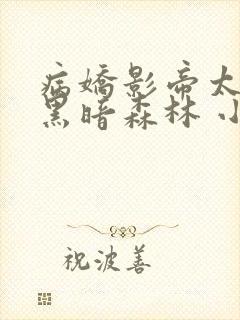 病嬌影帝太
黑暗森林 小
祝波善